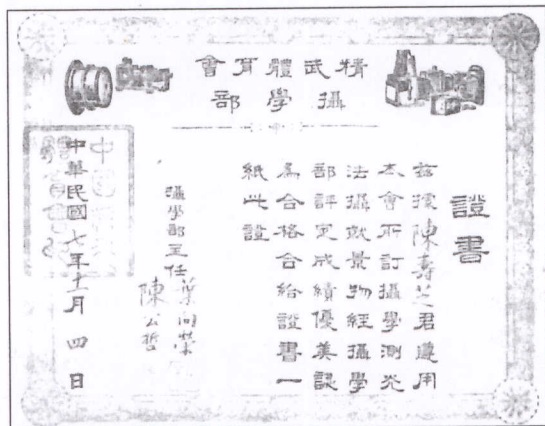 精武體育會
攝學部
證書
茲據陳壽芝君遵用
本會所訂攝學測光
法攝取景物經攝學
部評定成績優美認
為合格合給證書一
紙此證
攝學部主任
葉向榮
陳公哲
中華民國七年十一月四日